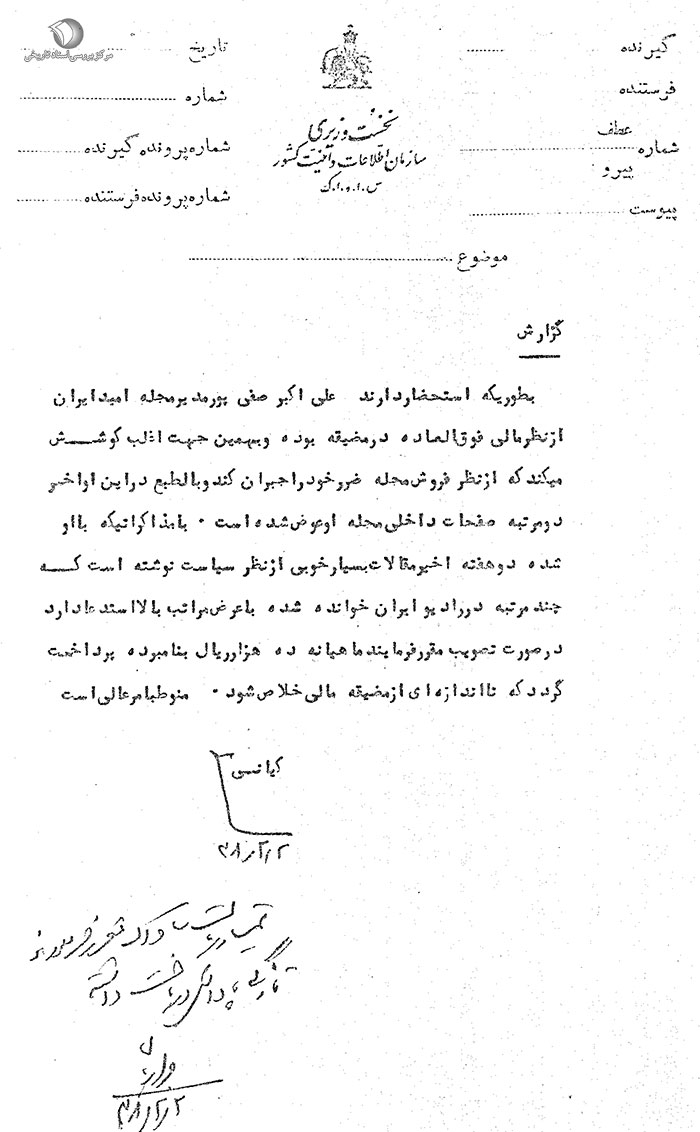 مرکز بررسی اسناد تاریخی
گیرنده
فرستنده
عطف
شماره
پیرو
پیوست
نخست وزیری
سازمان اطلاعات و امنیت کشور
س.ا.و.ا.ک
تاریخ
شماره
شماره پرونده گیرنده
شماره پرونده فرستنده
موضوع
گزارش
بطوریکه استحضار دارند علی اکبر صفی پور مدیر مجله امید ایران
از نظر مالی فوق العاده در مضیقه بوده و بهمین جهت اغلب کوشش
میکند که از نظر فروش مجله ضرر خود را جبران کند و بالطبع در این اواخر
دو مرتبه صفحات داخلی مجله او عوض شده است . با مذاکراتیکه با او
شده دو هفته اخیر مقالات بسیار خوبی از نظر سیاست نوشته است که
چند مرتبه در رادیو ایران خوانده شده با عرض مراتب بالا استدعا دارد
در صورت تصویب مقرر فرمایند ماهیانه ده هزار ریال بنامبرده پرداخت
گردد که تا اندازه ای از مضیقه مالی خلاص شود . منوط بامر عالی است
کیانی